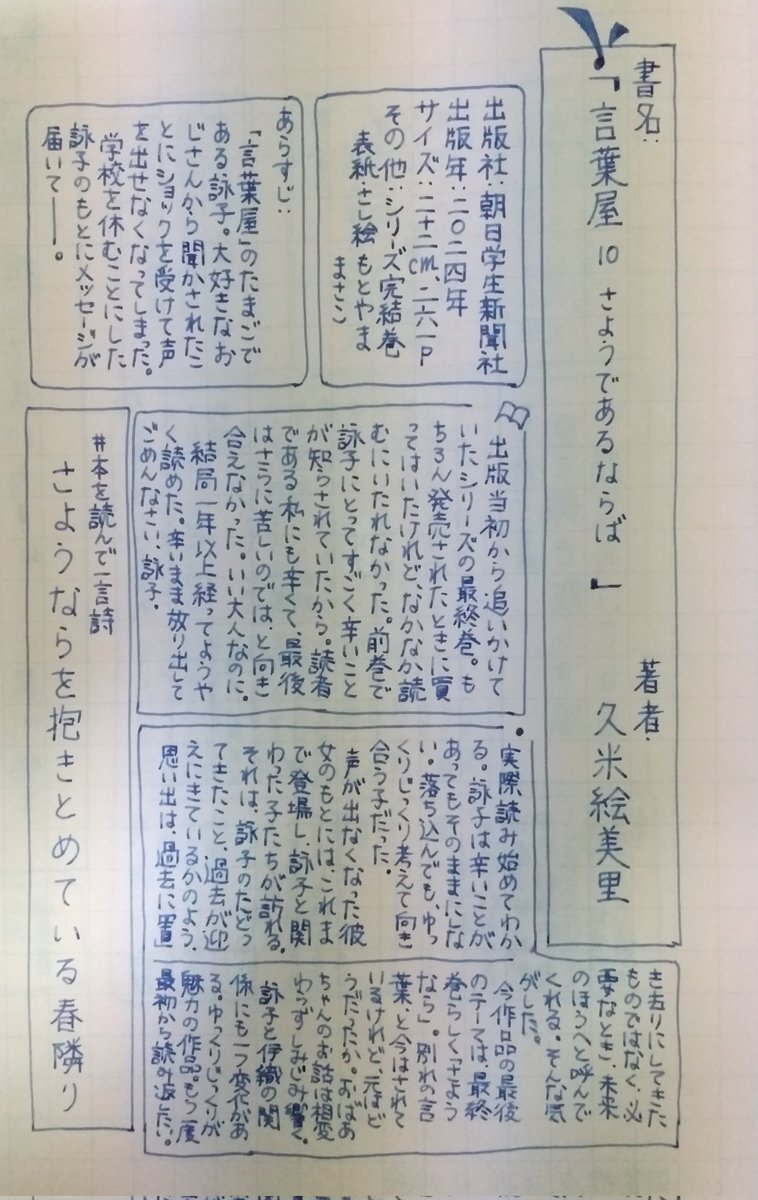 書名:
『言葉屋 10 さようであるならば』
著者:
久米絵美里
出版社:朝日学生新聞社
出版年:二〇二四年
サイズ:二十二cm、二六一P
その他:シリーズ完結巻
表紙・さし絵 もとやま
まさこ
あらすじ:
「言葉屋」のたまごで
ある詠子。大好きなお
じさんから聞かされたこ
とにショックを受けて声
を出せなくなってしまった。
学校を休むことにした
詠子のもとにメッセージが
届いて――。
出版当初から追いかけて
いたシリーズの最終巻。も
ちろん発売されたときに買
ってはいたけれど、なかなか読
むにいたれなかった。前巻で
詠子にとってすごく辛いこと
が知らされていたから。読者
である私にも辛くて、最後
はさらに苦しいのでは、と向き
合えなかった。いい大人なのに。
結局一年以上経ってようや
く読めた。辛いまま放り出して
ごめんなさい、詠子。
実際読み始めてわか
る。詠子は辛いことが
あってもそのままにしな
い。落ち込んでも、ゆっ
くりじっくり考えて向き
合う子だった。
声が出なくなった彼
女のもとには、これま
で登場し、詠子と関
わった子たちが訪れる。
それは、詠子のたどっ
てきたこと、過去が迎
えにきているかのよう。
思い出は、過去に置
き去りにしてきた
ものではなく、必
要なとき、未来
のほうへと呼んで
くれる。そんな気
がした。
今作品の最後
のテーマは、最終
巻らしく「さよう
なら」。別れの言
葉、と今はされて
いるけれど、元はど
うだったか。おばあ
ちゃんのお話は相変
わらずしみじみ響く。
詠子と伊織の関
係にも一つ変化があ
る。ゆっくりじっくりが
魅力の作品。もう一度
最初から読み返したい。
#本を読んで一言詩
さようならを抱きとめている春隣り